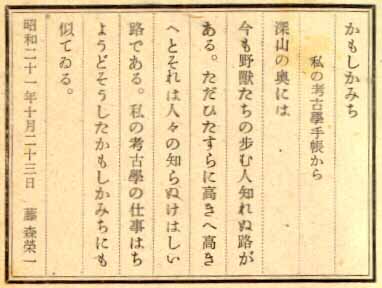 かもしかみち
私の考古學手帳から
深山の奥には
今も野獸たちの歩む人知れぬ路が
ある。ただひたすらに高きへ高き
へとそれは人々の知らぬけはしい
路である。私の考古學の仕事はち
ようどそうしたかもしかみちにも
似てゐる。
昭和二十一年十月二十三日　藤森榮一